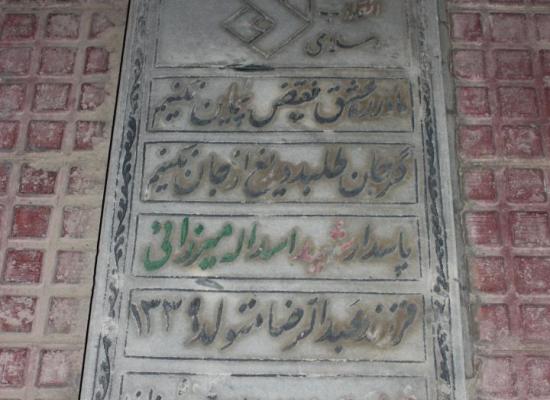 انقلاب
اسلامی
ما در ره عشق نقض پیمان نکنیم
گر جان طلبد دریغ از جان نکنیم
پاسدار شهید اسداله میرزائی
فرزند عبدالرضا متولد ۱۳۳۹